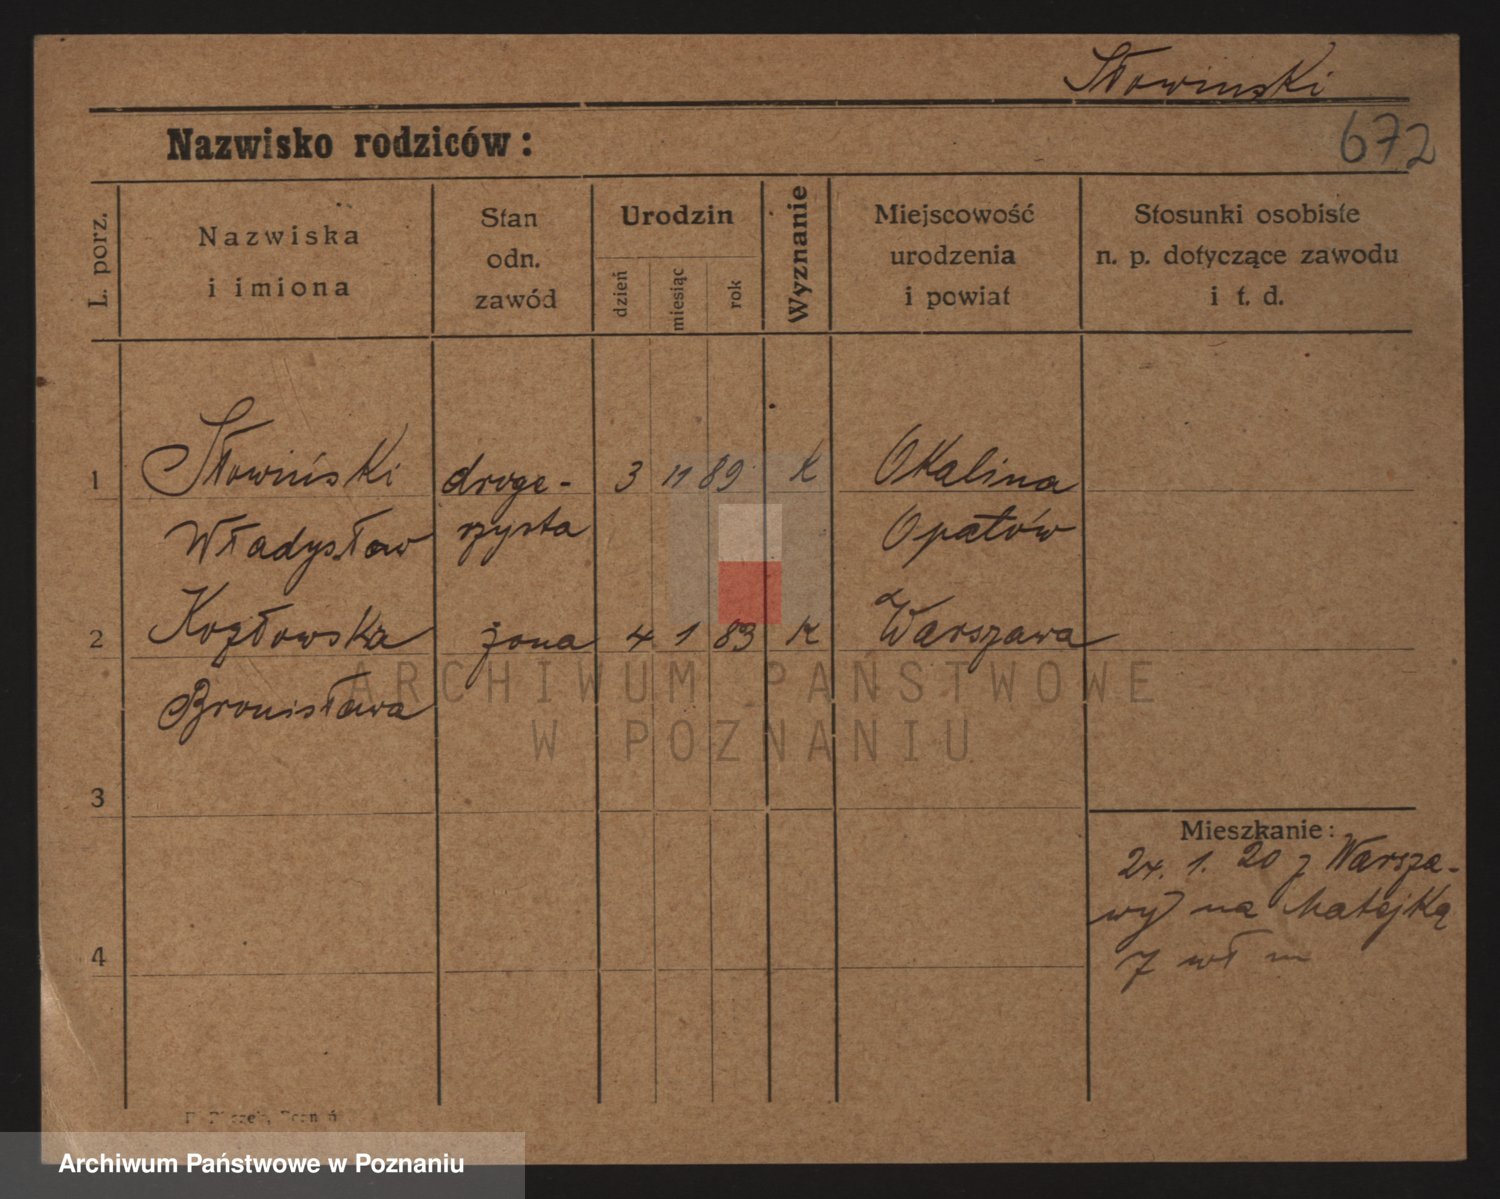 Słowinski
672
Nazwisko rodziców:
L. porz.
Nazwiska
i imiona
Stan
odn.
zawód
Urodzin
dzień
miesiąc
rok
Wyznanie
Miejscowość
urodzenia
i powiat
Stosunki osobiste
n. p. dotyczące zawodu
i t. d.
1 Słowiński droge- 3 11 89 K Okalina
Władysław rzysta Opatów
2 Kozłowska żona 4 1 83 K Warszawa
Bronisława
ARCHIWUM PAŃSTWOWE
W POZNANIU
3
Mieszkanie:
24. 1. 20 z Warsza-
wy na Matejką
7 wł m
4
Archiwum Państwowe w Poznaniu